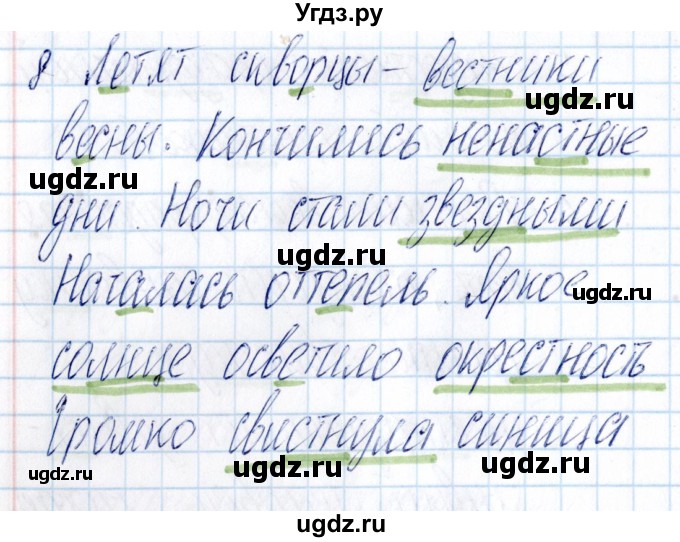 Угдз.ру
8 Летят скворцы – вестники
ugdz.ru
весны. Кончились ненастные
ugdz.ru
дни. Ночи стали звездными
ugdz.ru
Началась оттепель. Яркое
ugdz.ru
солнце осветило окрестность
ugdz.ru
Громко свистнула синица
ugdz.ru
ugdz.ru
ugdz.ru
ugdz.ru